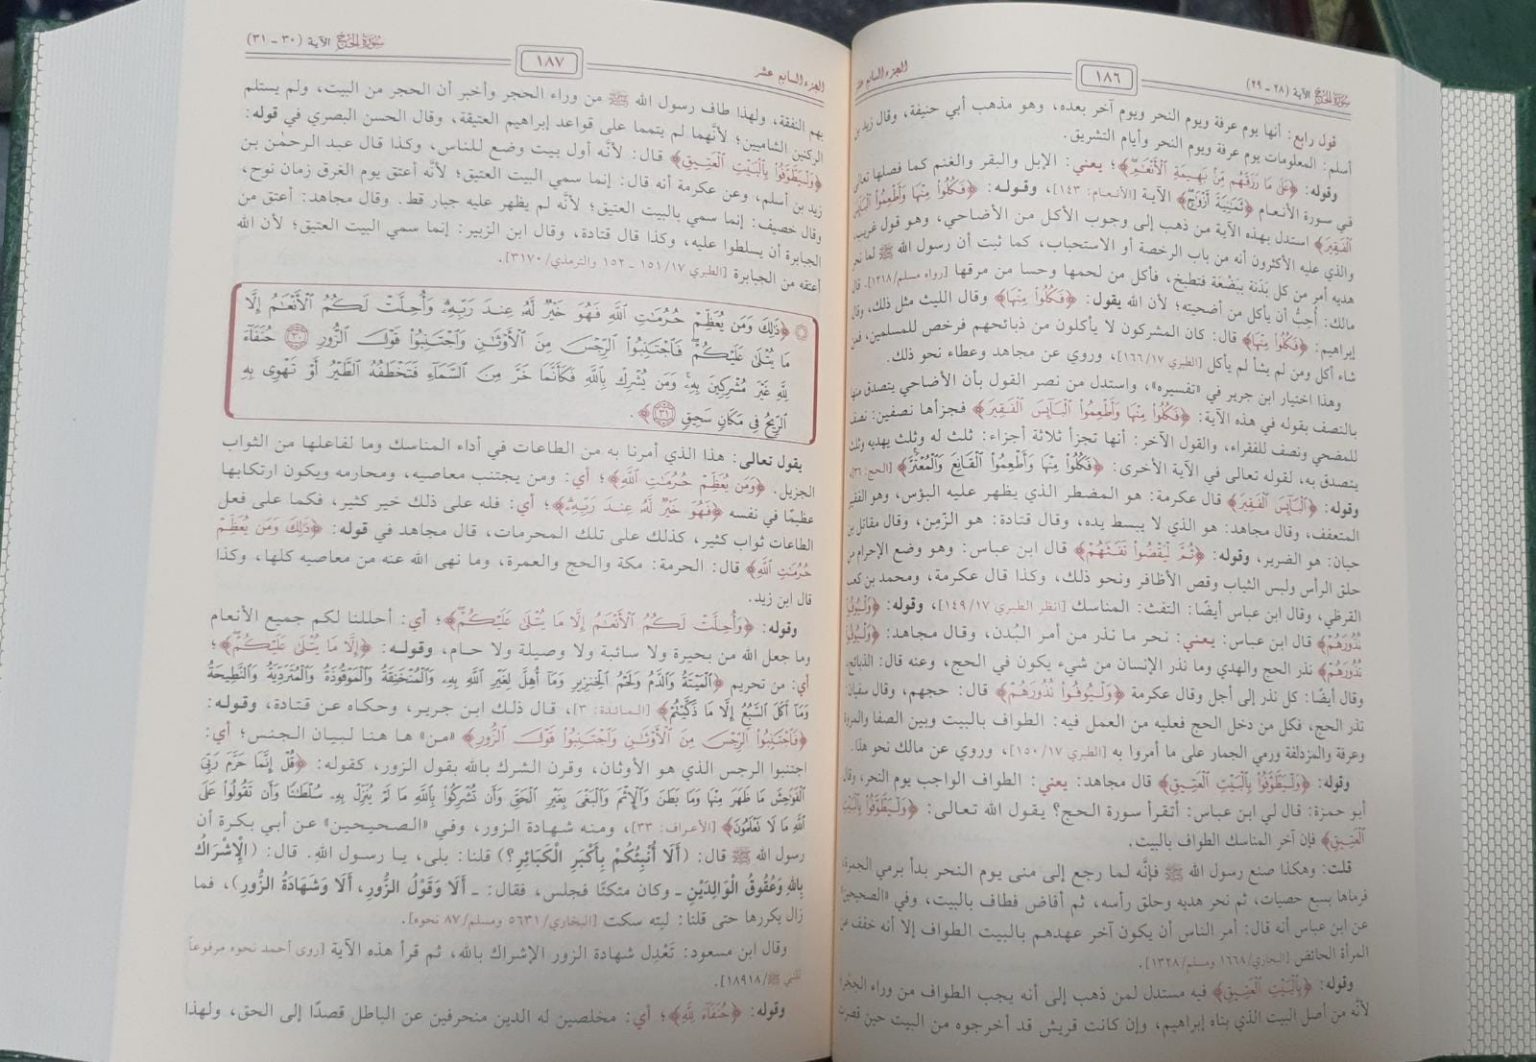 سورة الحج الآية (٢٨ - ٢٩)
١٨٦
الجزء السابع عشر
قول رابع: أنها يوم عرفة ويوم النحر ويوم آخر بعده، وهو مذهب أبي حنيفة، وقال زيد بن
أسلم: المعلومات يوم عرفة ويوم النحر وأيام التشريق.
وقوله: ﴿عَلَى مَا رَزَقَهُم مِّنْ بَهِيمَةِ الْأَنْعَامِ﴾؛ يعني: الإبل والبقر والغنم كما فصلها تعالى
في سورة الأنعام ﴿ثَمَانِيَةَ أَزْوَاجٍ﴾ الآية [الأنعام: ١٤٣]، وقوله: ﴿فَكُلُوا مِنْهَا وَأَطْعِمُوا الْبَائِسَ
الْفَقِيرَ﴾ استدل بهذه الآية من ذهب إلى وجوب الأكل من الأضاحي، وهو قول غريب،
والذي عليه الأكثرون أنه من باب الرخصة أو الاستحباب، كما ثبت أن رسول الله ﷺ لما نحر
هديه أمر من كل بَدَنة ببَضْعَة فتطبخ، فأكل من لحمها وحسا من مرقها [رواه مسلم/١٢١٨]. قال
مالك: أُحِبُّ أن يأكل من أضحيته؛ لأن الله يقول: ﴿فَكُلُوا مِنْهَا﴾ وقال الليث مثل ذلك، وقال
إبراهيم: ﴿فَكُلُوا مِنْهَا﴾ قال: كان المشركون لا يأكلون من ذبائحهم فرخص للمسلمين، فمن
شاء أكل ومن لم يشأ لم يأكل [الطبري ١٦٦/١٧]، وروي عن مجاهد وعطاء نحو ذلك.
وهذا اختيار ابن جرير في «تفسيره»، واستدل من نصر القول بأن الأضاحي يتصدق منها
بالنصف بقوله في هذه الآية: ﴿فَكُلُوا مِنْهَا وَأَطْعِمُوا الْبَائِسَ الْفَقِيرَ﴾ فجزأها نصفين: نصف
للمضحي ونصف للفقراء، والقول الآخر: أنها تجزأ ثلاثة أجزاء: ثلث له وثلث يهديه وثلث
يتصدق به، لقوله تعالى في الآية الأخرى: ﴿فَكُلُوا مِنْهَا وَأَطْعِمُوا الْقَانِعَ وَالْمُعْتَرَّ﴾ [الحج: ٣٦]،
وقوله: ﴿الْبَائِسَ الْفَقِيرَ﴾ قال عكرمة: هو المضطر الذي يظهر عليه البؤس، وهو الفقير
المتعفف، وقال مجاهد: هو الذي لا يبسط يده، وقال قتادة: هو الزّمِن، وقال مقاتل بن
حيان: هو الضرير، وقوله: ﴿ثُمَّ لْيَقْضُوا تَفَثَهُمْ﴾ قال ابن عباس: وهو وضع الإحرام من
حلق الرأس ولبس الثياب وقص الأظافر ونحو ذلك، وكذا قال عكرمة، ومحمد بن كعب
القرظي، وقال ابن عباس أيضًا: التفث: المناسك [انظر الطبري ١٤٩/١٧]، وقوله: ﴿وَلْيُوفُوا
نُذُورَهُمْ﴾ قال ابن عباس: يعني: نحر ما نذر من أمر البُدن، وقال مجاهد: ﴿وَلْيُوفُوا
نُذُورَهُمْ﴾ نذر الحج والهدي وما نذر الإنسان من شيء يكون في الحج، وعنه قال: الذبائح،
وقال أيضًا: كل نذر إلى أجل وقال عكرمة ﴿وَلْيُوفُوا نُذُورَهُمْ﴾ قال: حجهم، وقال سفيان:
نذر الحج، فكل من دخل الحج فعليه من العمل فيه: الطواف بالبيت وبين الصفا والمروة
وعرفة والمزدلفة ورمي الجمار على ما أمروا به [الطبري ١٥٠/١٧]، وروي عن مالك نحو هذا.
وقوله: ﴿وَلْيَطَّوَّفُوا بِالْبَيْتِ الْعَتِيقِ﴾ قال مجاهد: يعني: الطواف الواجب يوم النحر، وقال
أبو حمزة: قال لي ابن عباس: أتقرأ سورة الحج؟ يقول الله تعالى: ﴿وَلْيَطَّوَّفُوا بِالْبَيْتِ
الْعَتِيقِ﴾ فإن آخر المناسك الطواف بالبيت.
قلت: وهكذا صنع رسول الله ﷺ فإنَّه لما رجع إلى منى يوم النحر بدأ برمي الجمرة،
فرماها بسبع حصيات، ثم نحر هديه وحلق رأسه، ثم أفاض فطاف بالبيت، وفي «الصحيحين»
عن ابن عباس أنه قال: أمر الناس أن يكون آخر عهدهم بالبيت الطواف إلا أنه خفف عن
المرأة الحائض [البخاري/١٦٦٨ ومسلم/١٣٢٨].
وقوله: ﴿بِالْبَيْتِ الْعَتِيقِ﴾ فيه مستدل لمن ذهب إلى أنه يجب الطواف من وراء الحِجْر؛
لأنَّه من أصل البيت الذي بناه إبراهيم، وإن كانت قريش قد أخرجوه من البيت حين قصرت
الجزء السابع عشر
١٨٧
سورة الحج الآية (٣٠ - ٣١)
بهم النفقة، ولهذا طاف رسول الله ﷺ من وراء الحجر وأخبر أن الحجر من البيت، ولم يستلم
الركنين الشاميين؛ لأنَّهما لم يتمما على قواعد إبراهيم العتيقة، وقال الحسن البصري في قوله:
﴿وَلْيَطَّوَّفُوا بِالْبَيْتِ الْعَتِيقِ﴾ قال: لأنَّه أول بيت وضع للناس، وكذا قال عبد الرحمٰن بن
زيد بن أسلم، وعن عكرمة أنه قال: إنما سمي البيت العتيق؛ لأنَّه أعتق يوم الغرق زمان نوح،
وقال خصيف: إنما سمي بالبيت العتيق؛ لأنَّه لم يظهر عليه جبار قط. وقال مجاهد: أعتق من
الجبابرة أن يسلطوا عليه، وكذا قال قتادة، وقال ابن الزبير: إنما سمي البيت العتيق؛ لأن الله
أعتقه من الجبابرة [الطبري ١٥١/١٧ - ١٥٢ والترمذي/٣١٧٠].
﴿ذَٰلِكَ وَمَن يُعَظِّمْ حُرُمَٰتِ اللَّهِ فَهُوَ خَيْرٌ لَّهُ عِندَ رَبِّهِ وَأُحِلَّتْ لَكُمُ الْأَنْعَٰمُ إِلَّا
مَا يُتْلَىٰ عَلَيْكُمْ فَاجْتَنِبُوا الرِّجْسَ مِنَ الْأَوْثَٰنِ وَاجْتَنِبُوا قَوْلَ الزُّورِ ٣٠ حُنَفَاءَ
لِلَّهِ غَيْرَ مُشْرِكِينَ بِهِ وَمَن يُشْرِكْ بِاللَّهِ فَكَأَنَّمَا خَرَّ مِنَ السَّمَاءِ فَتَخْطَفُهُ الطَّيْرُ أَوْ تَهْوِي بِهِ
الرِّيحُ فِي مَكَانٍ سَحِيقٍ ٣١﴾.
يقول تعالى: هذا الذي أمرنا به من الطاعات في أداء المناسك وما لفاعلها من الثواب
الجزيل. ﴿وَمَن يُعَظِّمْ حُرُمَٰتِ اللَّهِ﴾؛ أي: ومن يجتنب معاصيه، ومحارمه ويكون ارتكابها
عظيمًا في نفسه ﴿فَهُوَ خَيْرٌ لَّهُ عِندَ رَبِّهِ﴾؛ أي: فله على ذلك خير كثير، فكما على فعل
الطاعات ثواب كثير، كذلك على تلك المحرمات، قال مجاهد في قوله: ﴿ذَٰلِكَ وَمَن يُعَظِّمْ
حُرُمَٰتِ اللَّهِ﴾ قال: الحرمة: مكة والحج والعمرة، وما نهى الله عنه من معاصيه كلها، وكذا
قال ابن زيد.
وقوله: ﴿وَأُحِلَّتْ لَكُمُ الْأَنْعَٰمُ إِلَّا مَا يُتْلَىٰ عَلَيْكُمْ﴾؛ أي: أحللنا لكم جميع الأنعام
وما جعل الله من بحيرة ولا سائبة ولا وصيلة ولا حام، وقوله: ﴿إِلَّا مَا يُتْلَىٰ عَلَيْكُمْ﴾؛
أي: من تحريم ﴿الْمَيْتَةُ وَالدَّمُ وَلَحْمُ الْخِنزِيرِ وَمَا أُهِلَّ لِغَيْرِ اللَّهِ بِهِ وَالْمُنْخَنِقَةُ وَالْمَوْقُوذَةُ وَالْمُتَرَدِّيَةُ وَالنَّطِيحَةُ
وَمَا أَكَلَ السَّبُعُ إِلَّا مَا ذَكَّيْتُمْ﴾ [المائدة: ٣]، قال ذلك ابن جرير، وحكاه عن قتادة، وقوله:
﴿فَاجْتَنِبُوا الرِّجْسَ مِنَ الْأَوْثَٰنِ وَاجْتَنِبُوا قَوْلَ الزُّورِ﴾ «من» ها هنا لبيان الجنس؛ أي:
اجتنبوا الرجس الذي هو الأوثان، وقرن الشرك بالله بقول الزور، كقوله: ﴿قُلْ إِنَّمَا حَرَّمَ رَبِّيَ
الْفَوَٰحِشَ مَا ظَهَرَ مِنْهَا وَمَا بَطَنَ وَالْإِثْمَ وَالْبَغْيَ بِغَيْرِ الْحَقِّ وَأَن تُشْرِكُوا بِاللَّهِ مَا لَمْ يُنَزِّلْ بِهِ سُلْطَٰنًا وَأَن تَقُولُوا عَلَى
اللَّهِ مَا لَا تَعْلَمُونَ﴾ [الأعراف: ٣٣]، ومنه شهادة الزور، وفي «الصحيحين» عن أبي بكرة أن
رسول الله ﷺ قال: (أَلَا أُنَبِّئُكُمْ بِأَكْبَرِ الْكَبَائِرِ؟) قلنا: بلى، يا رسول اللهِ. قال: (الْإِشْرَاكُ
بِاللهِ وَعُقُوقُ الْوَالِدَيْنِ ـ وكان متكئًا فجلس، فقال: ـ أَلَا وَقَوْلُ الزُّورِ، أَلَا وَشَهَادَةُ الزُّورِ)، فما
زال يكررها حتى قلنا: ليته سكت [البخاري/٥٦٣١ ومسلم/٨٧ نحوه].
وقال ابن مسعود: تَعْدِل شهادة الزور الإشراك بالله، ثم قرأ هذه الآية [روى أحمد نحوه مرفوعاً
للنبي ﷺ/١٨٩١٨].
وقوله: ﴿حُنَفَاءَ لِلَّهِ﴾؛ أي: مخلصين له الدين منحرفين عن الباطل قصدًا إلى الحق، ولهذا